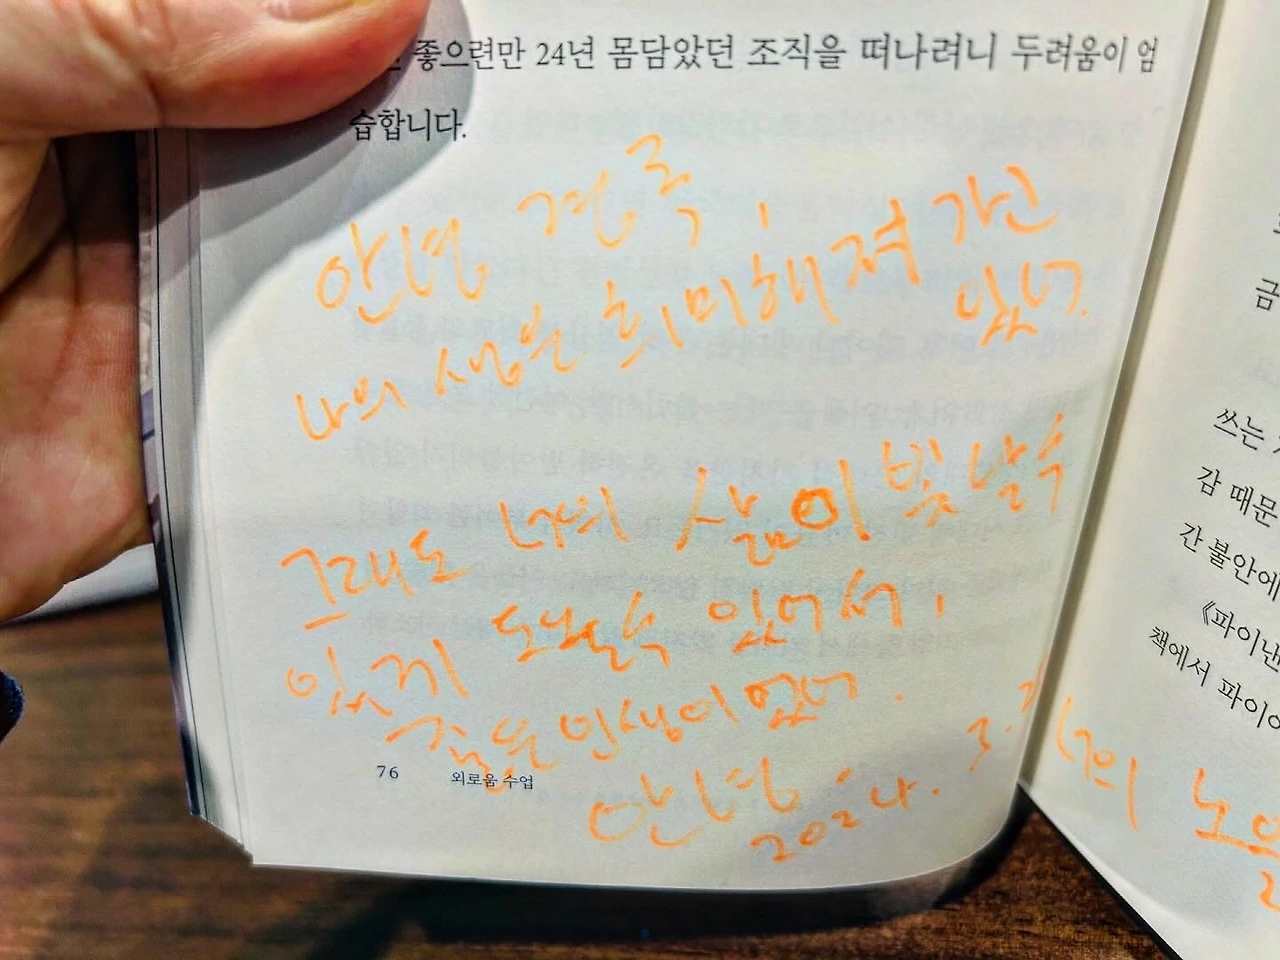 좋으련만 24년 몸담았던 조직을 떠나려니 두려움이 엄
습합니다.
안녕
나의 생은 희미해져 가고
있어.
그래도 너의 삶이 빛날 수
있게 도와줄 수 있어서,
좋은 인생이었어.
안녕
76 외로움 수업
금
쓰는
감 때문
간 불안에
《파이낸
책에서 파이어
너의 노을